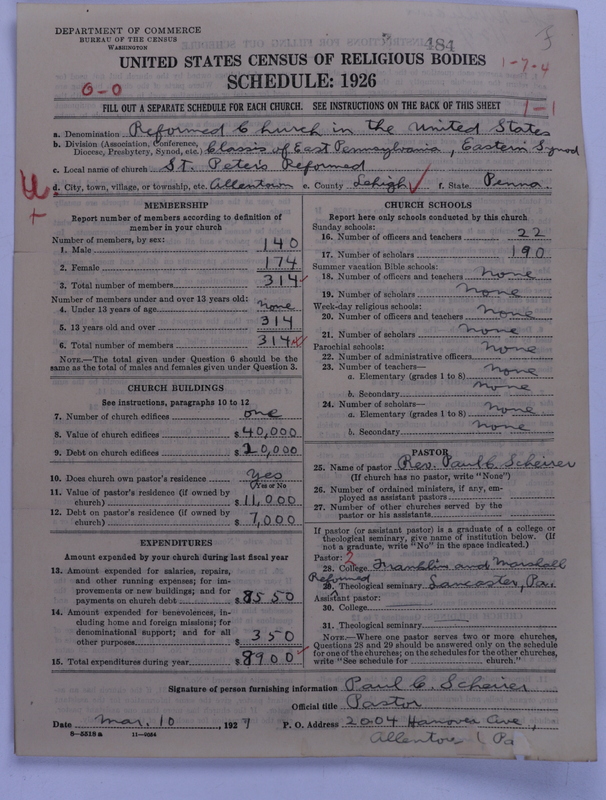 DEPARTMENT OF COMMERCE
BUREAU OF THE CENSUS
WASHINGTON
484
UNITED STATES CENSUS OF RELIGIOUS BODIES
1-7-4
SCHEDULE: 1926
0-0
FILL OUT A SEPARATE SCHEDULE FOR EACH CHURCH. SEE INSTRUCTIONS ON THE BACK OF THIS SHEET
1-1
a. Denomination Reformed Church in the United States
b. Division (Association, Conference, Diocese, Presbytery, Synod, etc.) Classis of East Pennsylvania, Eastern Synod
c. Local name of church St. Peter's Reformed
d. City, town, village, or township, etc. Allentown e. County Lehigh f. State Penna.
MEMBERSHIP
Report number of members according to definition of
member in your church
Number of members, by sex:
1. Male 140
2. Female 174
3. Total number of members 314
Number of members under and over 13 years old:
4. Under 13 years of age none
5. 13 years old and over 314
6. Total number of members 314
NOTE.—The total given under Question 6 should be the
same as the total of males and females given under Question 3.
CHURCH BUILDINGS
See instructions, paragraphs 10 to 12
7. Number of church edifices one
8. Value of church edifices $40,000
9. Debt on church edifices $20,000
10. Does church own pastor's residence Yes
Yes or No
11. Value of pastor's residence (if owned by
church) $11,000
12. Debt on pastor's residence (if owned by
church) $7,000
EXPENDITURES
Amount expended by your church during last fiscal year
13. Amount expended for salaries, repairs,
and other running expenses; for im-
provements or new buildings; and for
payments on church debt $8550
14. Amount expended for benevolences, in-
cluding home and foreign missions; for
denominational support; and for all
other purposes $350
15. Total expenditures during year $8900
CHURCH SCHOOLS
Report here only schools conducted by this church
Sunday schools:
16. Number of officers and teachers 22
17. Number of scholars 190
Summer vacation Bible schools:
18. Number of officers and teachers none
19. Number of scholars none
Week-day religious schools:
20. Number of officers and teachers none
21. Number of scholars none
Parochial schools:
22. Number of administrative officers none
23. Number of teachers—
a. Elementary (grades 1 to 8) none
b. Secondary none
24. Number of scholars—
a. Elementary (grades 1 to 8) none
b. Secondary none
PASTOR
25. Name of pastor Rev. Paul C. Scheirer
(If church has no pastor, write "None")
26. Number of ordained ministers, if any, em-
ployed as assistant pastors
27. Number of other churches served by the
pastor or his assistants
If pastor (or assistant pastor) is a graduate of a college or
theological seminary, give name of institution below. (If
not a graduate, write "No" in the space indicated.)
Pastor: 2
28. College Franklin and Marshall
Reformed
29. Theological seminary Lancaster, Pa.
Assistant pastor:
30. College
31. Theological seminary
NOTE.—Where one pastor serves two or more churches,
Questions 28 and 29 should be answered only on the schedule
for one of the churches; on the schedules for the other churches,
write "See schedule for church."
Signature of person furnishing information Paul C. Scheirer
Official title Pastor
Date Mar. 10 1927 P. O. Address 2204 Hanover Ave,
8-5518 a 11-9054
Allentown Pa